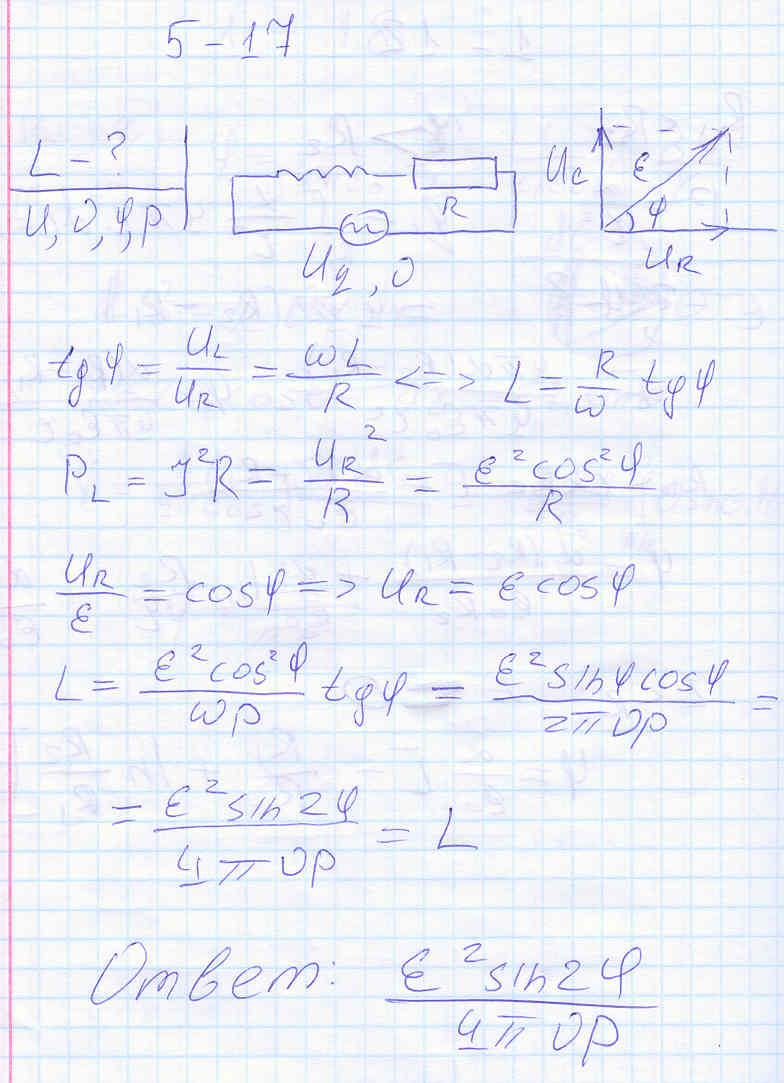 5-17
L - ?
U, υ, φ, P
R
U₂, υ
U_C ε φ
U_R
tgφ = U_L/U_R = ωL/R <=> L = R/ω tgφ
P_L = J²R = U_R²/R = ε²cos²φ/R
U_R/ε = cosφ => U_R = ε cosφ
L = ε²cos²φ/ωP tgφ = ε²sinφcosφ/2πυP =
= ε²sin2φ/4πυP = L
Ответ: ε²sin2φ/4πυP